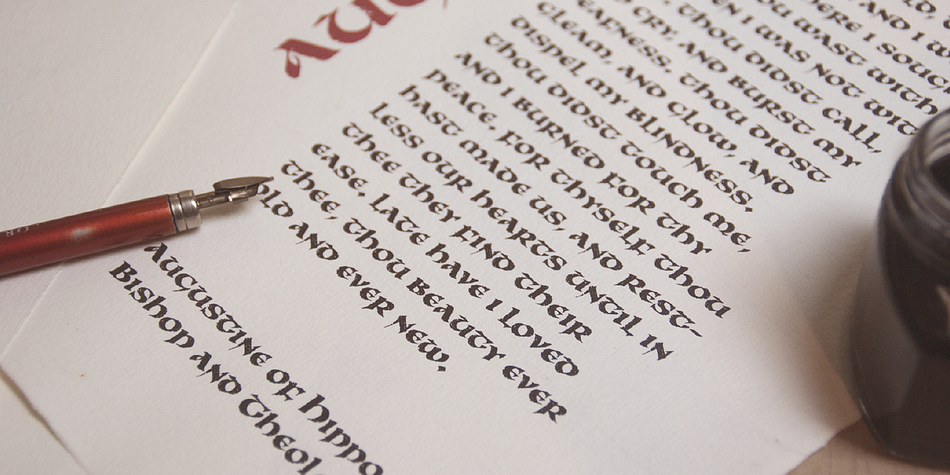 AUG
AND I W
HERE I SOUGH
WAST WITH
N I WAS NOT WIT
THOU DIDST CALL,
CRY, AND BURST MY
EAFNESS. THOU DIDST
GLEAM, AND GLOW, AND
DISPEL MY BLINDNESS.
THOU DIDST TOUCH ME,
AND I BURNED FOR THY
PEACE. FOR THYSELF THOU
HAST MADE US, AND REST-
LESS OUR HEARTS UNTIL IN
THEE THEY FIND THEIR
EASE. LATE HAVE I LOVED
THEE, THOU BEAUTY EVER
OLD AND EVER NEW,
AUGUSTINE OF HIPPO
BISHOP AND THEOL